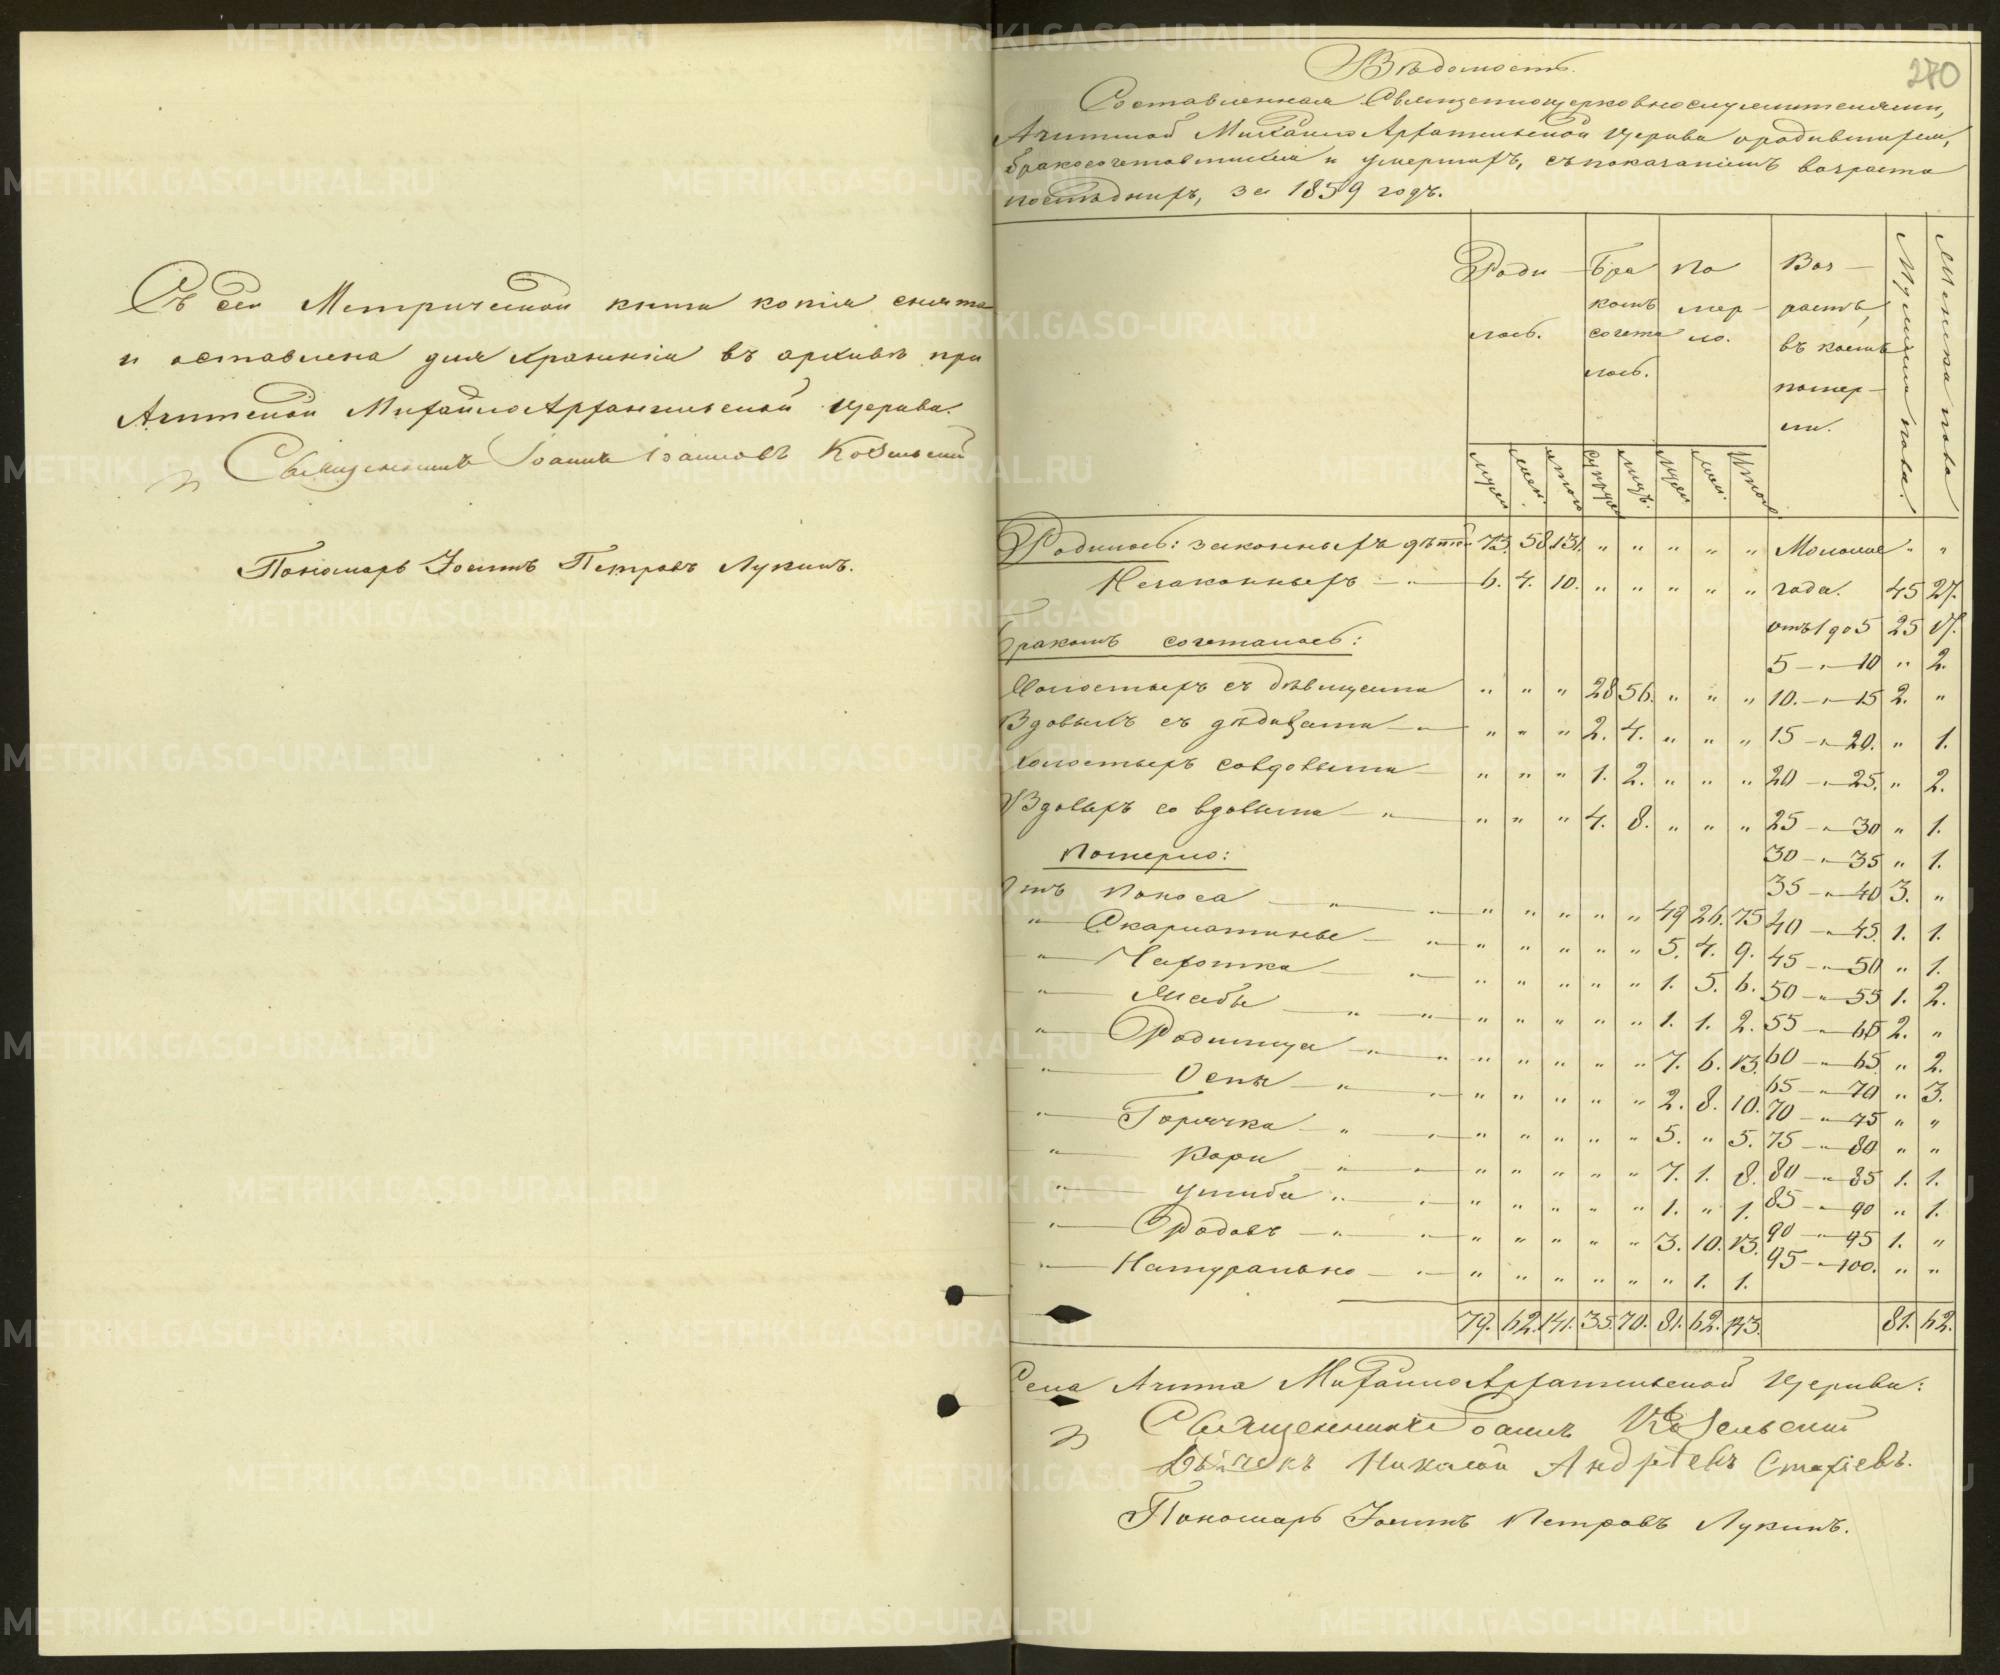 Съ сей Метрической книги копія снята
и оставлена для храненія въ архивѣ при
Ачитской Михайло Архангельской церкви.
Священникъ Іоаннъ Іоанновъ Козельскій
Пономарь Іосифъ Петровъ Лукинъ.
270
Вѣдомость.
Составленная Священноцерковнослужителями,
Ачитской Михайло Архангельской церкви о родившихся,
бракосочетавшихся и умершихъ, съ показаніемъ возраста
послѣднихъ, за 1859 годъ.
Роди-лось. Бракомъ сочета лось. По мер-ло. Воз-растъ, въ коемъ помер-ли. Мужеска пола. Женска пола
муж жен. итого супруж лицъ. муж жен. Итого
Родилось: законныхъ дѣтей 73. 58. 131. " " " " " Моложе " "
Незаконныхъ — " — 6. 4. 10. " " " " " года. 45 27.
Бракомъ сочеталось: отъ 1 до 5 25 17.
5 — " — 10 " 2.
Холостыхъ съ дѣвицами " " " 28 56. " " " 10. — " — 15 2. "
Вдовыхъ съ дѣвицами — " — " " " 2. 4. " " " 15 — " — 20. " 1.
Холостыхъ со вдовыми — " " " 1. 2. " " " 20 — " — 25. " 2.
Вдовыхъ со вдовыми — " — " " " 4. 8. " " " 25 — " — 30 " 1.
Померло: 30 — " — 35 " 1.
35 — " — 40 3. "
Отъ Поноса — " — " — " " " " " 49 26. 75 40 — " — 45. 1. 1.
" — Скарлатины — " — " " " " " 5. 4. 9. 45 — " — 50 " 1.
" — Чахотка — " — " " " " " 1. 5. 6. 50 — " — 55 1. 2.
" — Жабы — " — " — " " " " " 1. 1. 2. 55 — " — 65 2. "
" — Родимца — " — " " " " " " 7. 6. 13. 60 — " — 65 " 2.
" — Оспы — " — " — " " " " " 2. 8. 10. 65 — " — 70 " 3.
70 — " — 75 " "
" — Горячка — " — " — " " " " " 5. " 5. 75 — " — 80 " "
" — Кори — " — " — " " " " " 7. 1. 8. 80 — " — 85 1. 1.
" — Ушиба " — " — " " " " " 1. " 1. 85 — " — 90 " 1.
" — Родовъ — " — " — " " " " " 3. 10. 13. 90 — " — 95 1. "
" — Натурально — " — " " " " " " 1. 1. 95 — " — 100. " "
79. 62. 141. 35. 70. 81. 62. 143. 81. 62.
Села Ачита Михайло Архангельской церкви:
Священникъ Іоаннъ Козельскій
Дьячекъ Николай Андреевъ
Пономарь Іосифъ Петровъ Лукинъ.
METRIKI.GASO-URAL.RU